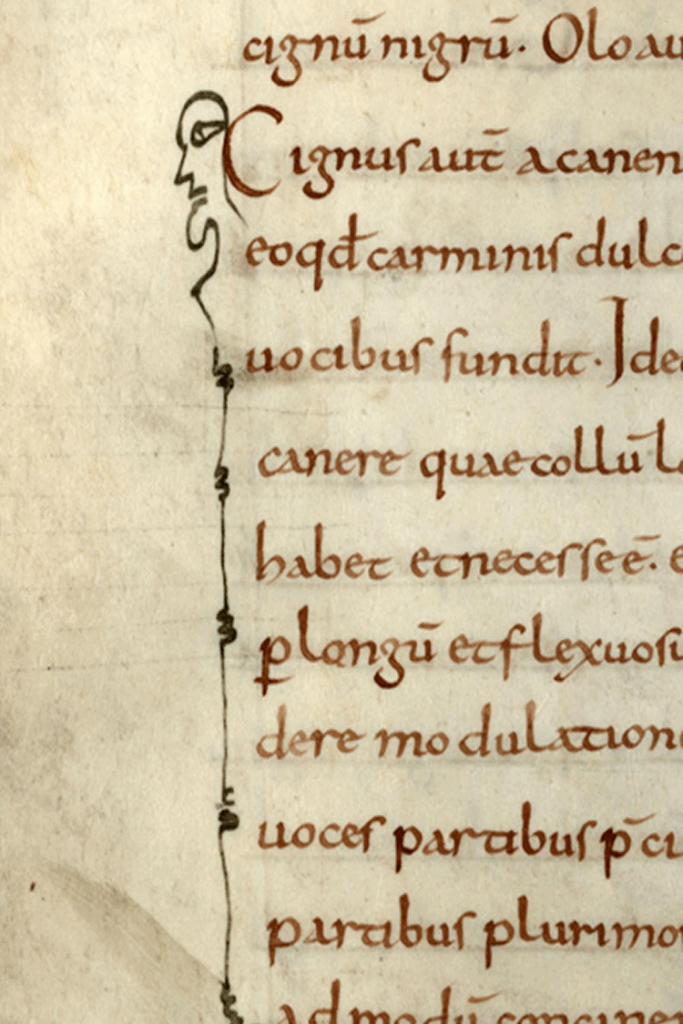 cignū nigrū. Olo au
Cignus aut̄ a canen
eo qđ carminis dulc
uocibus fundit. Ide
canere quae collū lo
habet et necesse ē. e
ꝑ longū et flexuosu
dere modulation
uoces partibus p̄ ci
partibus plurimo
ad modū concinen